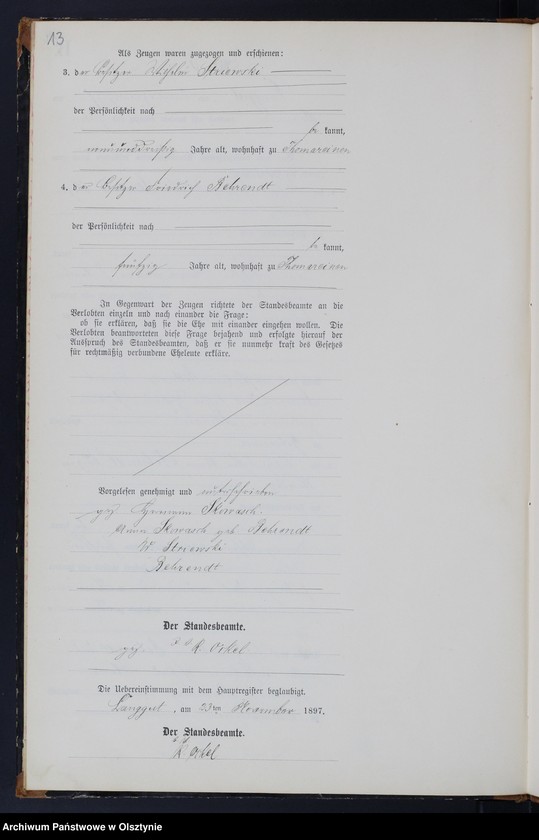 13
Als Zeugen waren zugezogen und erschienen:
3. der Besitzer Wilhelm Striewski
der Persönlichkeit nach
be kannt,
neununddreißig Jahre alt, wohnhaft zu Thomareinen
4. der Besitzer Friedrich Behrendt
der Persönlichkeit nach
be kannt,
fünfzig Jahre alt, wohnhaft zu Thomareinen
In Gegenwart der Zeugen richtete der Standesbeamte an die
Verlobten einzeln und nach einander die Frage:
ob sie erklären, daß sie die Ehe mit einander eingehen wollen. Die
Verlobten beantworteten diese Frage bejahend und erfolgte hierauf der
Ausspruch des Standesbeamten, daß er sie nunmehr kraft des Gesetzes
für rechtmäßig verbundene Eheleute erkläre.
Vorgelesen genehmigt und unterschrieben
gez. Hermann Skowasch.
Skowasch geb. Behrendt
W. Striewski
Behrendt
Der Standesbeamte.
gez.
Die Uebereinstimmung mit dem Hauptregister beglaubigt.
Langgut, am 23ten November 1897.
Der Standesbeamte.